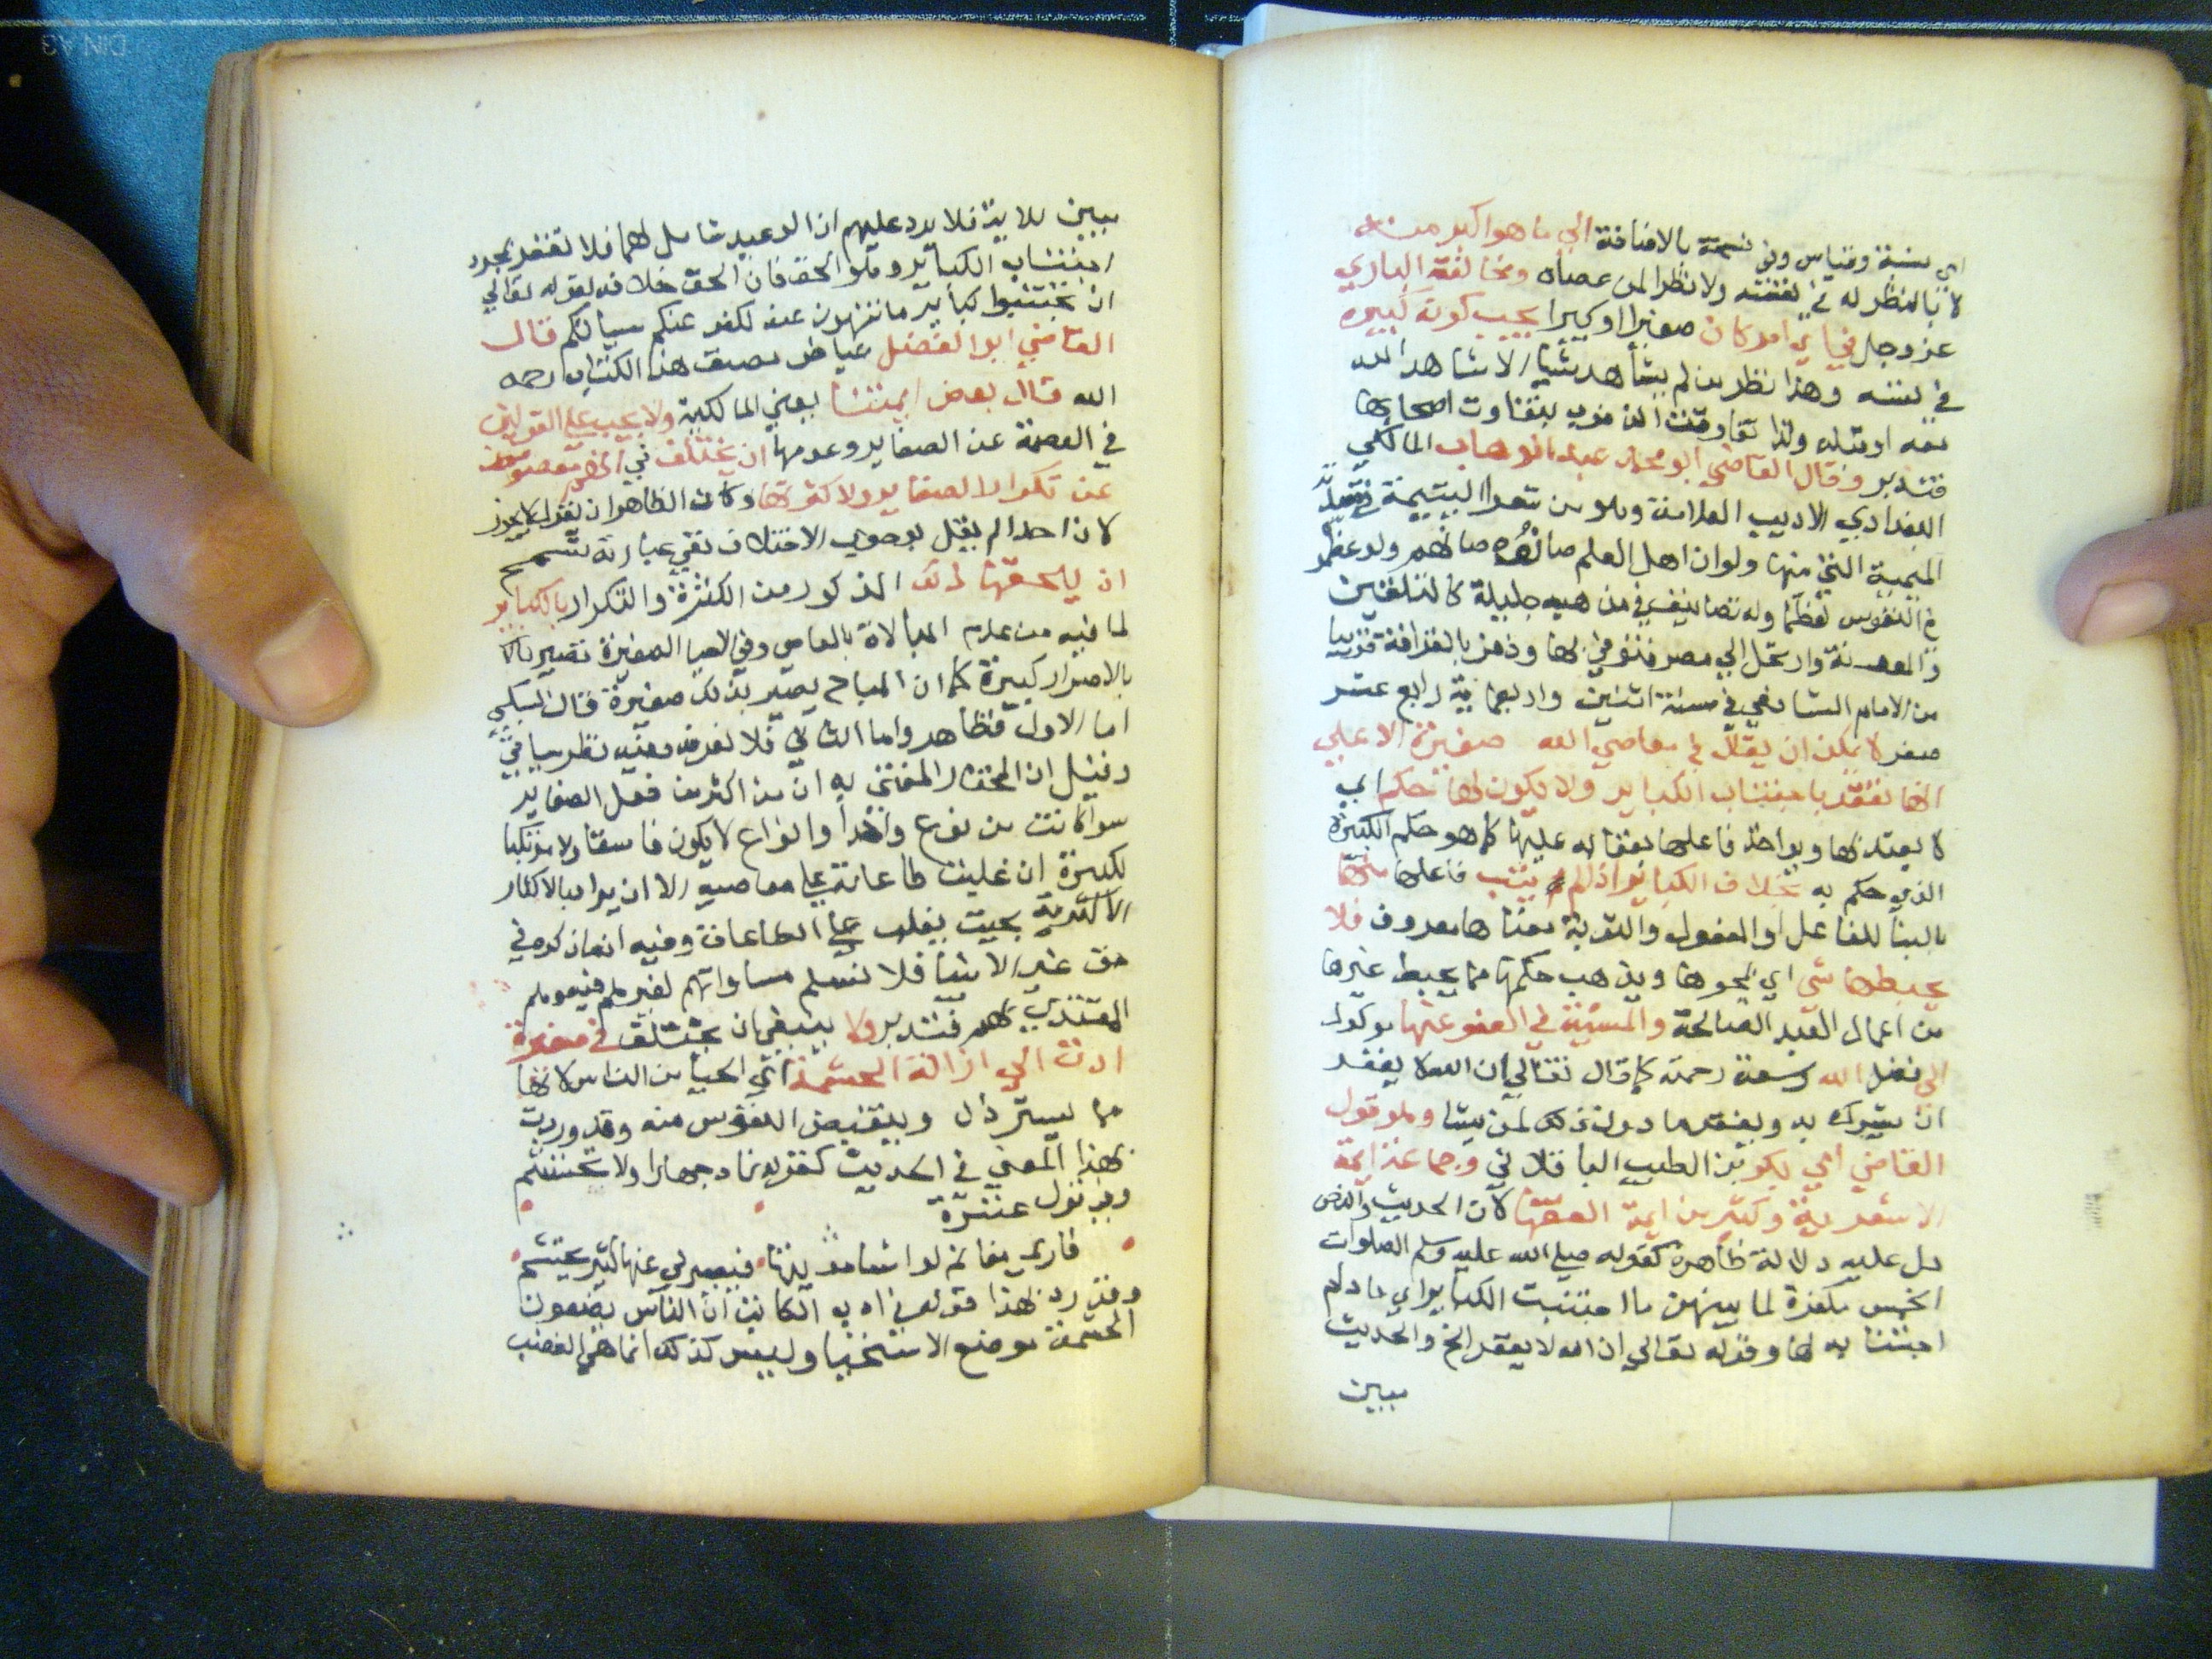 اي نسبة وقياس وفي نسخة بالاضافة الي ما هو اكبر منه
لا بالنظر له في نفسه ولا نظرا لمن عصاه ومخالفة الباري
عز وجل في اي امر كان صغيرا او كبيرا يجب كونه كبيرة
في نفسه وهذا نظر من لم يشاهد شيا الا شاهد الله
معه او قبله ولذا تفاوتت الذنوب بتفاوت اصحابها
فتدبر وقال القاضي ابو محمد عبد الوهاب المالكي
البغدادي الاديب العلامة وهو من شعرا اليتيمة
الميمية التي منها ولو ان اهل العلم صانوه صانهم ولو عظموه
في النفوس لعظما وله تصانيف في مذهبه جليلة كالتلقين
والمعونة وارتحل الي مصر فتوفي بها ودفن بالقرافة قريبا
من الامام الشافعي في سنة اثنين واربعماية رابع عشر
صفر لا يمكن ان يقال في معاصي الله صغيرة الا علي
انها تغتفر باجتناب الكباير ولا يكون لها حكم اي
لا يعتد بها ويواخذ فاعلها بعقابه عليها كما هو حكم الكبيرة
الذي حكم به بخلاف الكباير اذا لم يتب فاعلها منها
بالبنا للفاعل او المفعول والتوبة معناها معروف فلا
يحبطها شي اي يمحوها ويذهب حكمها مما يحبط غيرها
من اعمال العبد الصالحة والمشية في العفو عنها موكول
الي فضل الله وسعة رحمته كما قال تعالي ان الله لا يغفر
ان يشرك به ويغفر ما دون ذلك لمن يشا وهو قول
القاضي ابي بكر بن الطيب الباقلاني وجماعة ايمة
الاشعرية وكثير من ايمة الفقها لان الحديث والنص
دل عليه دلالة ظاهرة كقوله صلي الله عليه وسلم الصلوات
الخمس مكفرة لما بينهن ما اجتنبت الكباير اي ما دام
اجتنابه لها وقوله تعالي ان الله لا يغفر الخ والحديث
مبين
مبين للاية فلا يرد عليهم ان الوعيد شامل لهما فلا تغفر بمجرد
اجتناب الكباير وهو الحق فان الحق خلافه لقوله تعالي
ان تجتنبوا كباير ما تنهون عنه نكفر عنكم سياتكم قال
القاضي ابو الفضل عياض مصنف هذا الكتاب رحمه
الله قال بعض ايمتنا يعني المالكية ولا يجب علي القولين
في العصمة عن الصغاير وعدمها ان يختلف في انهم معصومون
عن تكرار الصغاير ولا كثرتها وكان الظاهر ان يقول لا يجوز
لان احدا لم يقل بوجوب الاختلاف ففي عبارته تسمح
ان يلحقها ذلك المذكور من الكثرة والتكرار بالكباير
لما فيه من عدم المبالاة بالمعاصي وفي الاحيا الصغيرة تصير
بالاصرار كبيرة كما ان المباح يصير بذلك صغيرة قال السبكي
اما الاول فظاهر واما الثاني فلا نعرفه وفيه نظر سياتي
وقيل ان المختار المفتي به ان من اكثر من فعل الصغاير
سوا كانت من نوع واحد او انواع لا يكون فاسقا ولا مرتكبا
لكبيرة ان غلبت طاعاته علي معاصيه الا ان يراد بالاكثار
الاكثرية بحيث يغلب علي الطاعات وفيه انه ان كره في
حق غير الانبيا فلا نسلم مساواتهم لغيرهم فيه وهم
المقتدي بهم فتدبر ولا ينبغي ان يختلف في صغيرة
ادت الي ازالة الحشمة اي الحيا من الناس لانها
مما يسترذل وينقبض النفوس منه وقد وردت
بهذا المعني في الحديث كفره نهارا جهارا ولا تحتشم
وبه قول عنترة
فاري مغانم لو اشا حويتها فيصدني عنها كثير تحشم
وقد رد بهذا قوله في ادب الكاتب ان الناس يضعون
الحشمة موضع الاستحيا وليس كذلك انما هي الغضب